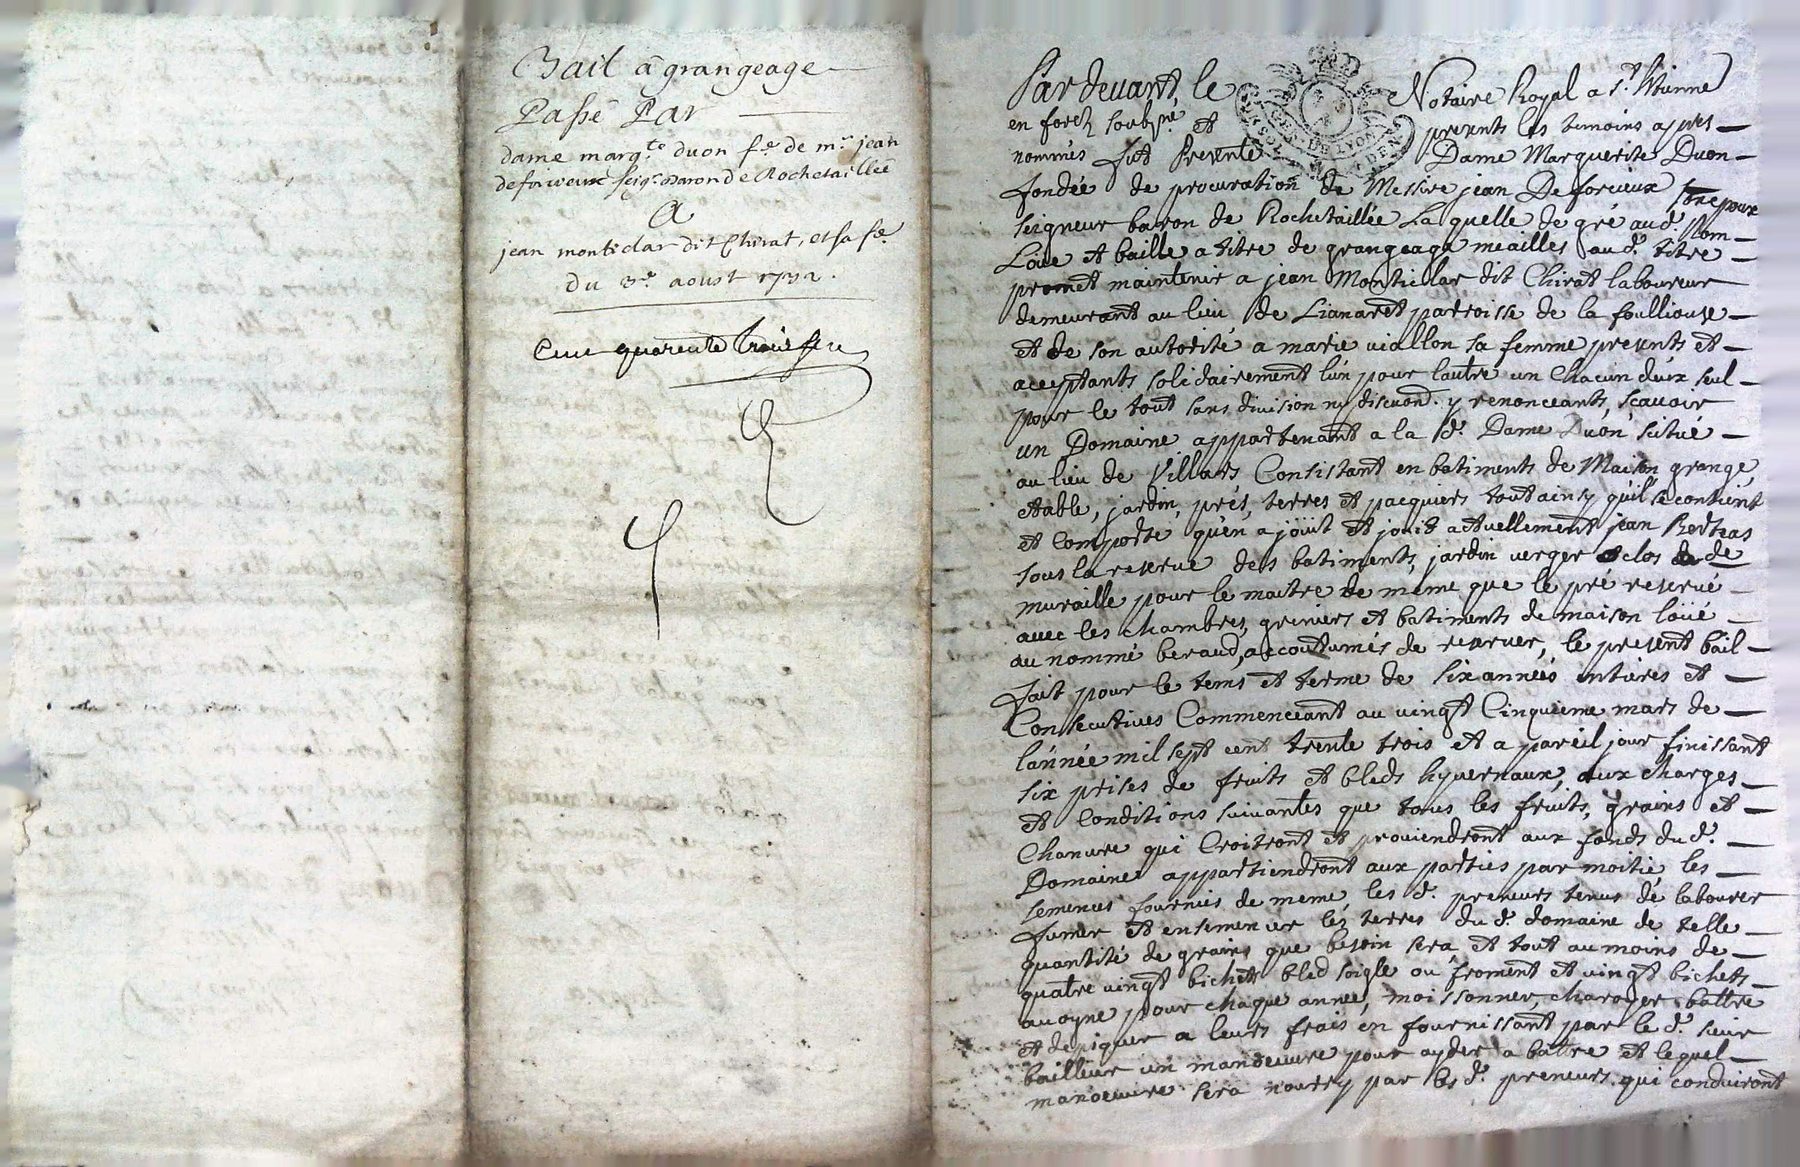 Bail a grangeage
Passé Par
dame marg.te duon f.e de m.re jean
deforieux seig.r Baron de Rochetaillée
A
jean monteclar dit Chirat, et sa f.e
du 3.e aoust 1732.
Cent quarente trois
Par devant le Notaire Royal a s.t Etienne
en forez soubz.né et presents les temoins apres
nommés fut Presente Dame Marguerite Duon
fondée de procuration de Messire jean De forieux son epoux
seigneur baron de Rochetaillée La quelle de gré aud. Nom
Loue et baille a titre de grangeage meailles aud. titre
promet maintenir a jean Monticlar dit Chirat laboureur
demeurant au lieu de Lianaret parroisse de la foulliouse
et de son autorité a marie viallon sa femme presents et
acceptants solidairement l'un pour lautre un Chacun deux seul
pour le tout sans division ny discuon. y renonceants, scavoir
un Domaine appartenant a la d. Dame Duon scitué
au lieu de Villars Consistant en batiments de Maison grange,
etable, jardin, prés, terres et pacquiers tout ainsy qu'il se contient
et Comporte qu'en a joüit et joüit actuellement jean Bertras
sous la reserve des batiments, jardin verger et clos de
muraille pour le maitre de meme que le pré reservé
avec les chambres, greniers et batiments de maison loüé
au nommé beraud, accoutumés de reserver, le present bail
fait pour le tems et terme de six années entieres et
Consecutives Commenceant au vingt Cinquieme mars de
l'année mil sept cent trente trois et a pareil jour finissant
six prises de fruits et bleds hyvernaux, aux charges
et Conditions suivantes que tous les fruits, grains et
Chanvre qui Croitront et proviendront aux fonds du d.
Domaine appartiendront aux parties par moitié, les
semences fournies de meme, les d. preneurs tenus de labourer
fumer et ensemencer les terres du d. domaine de telle
quantité de grains que besoin sera et tout au moins de
quatre vingt bichets bled seigle ou froment et vingt bichets
avoyne pour chaque année, moissonner, charoyer, battre
et depiquer a leurs frais en fournissant par le d. sieur
bailleur un manoeuvre pour ayder a battre et lequel
manoeuvre sera nourry par les d. preneurs qui conduiront